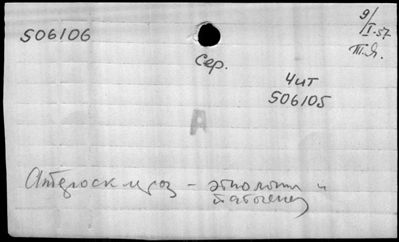 506106
9/I-57
Т.Я.
Сер.
Чит
506105
А
Атеросклероз - этиология и
патогенез